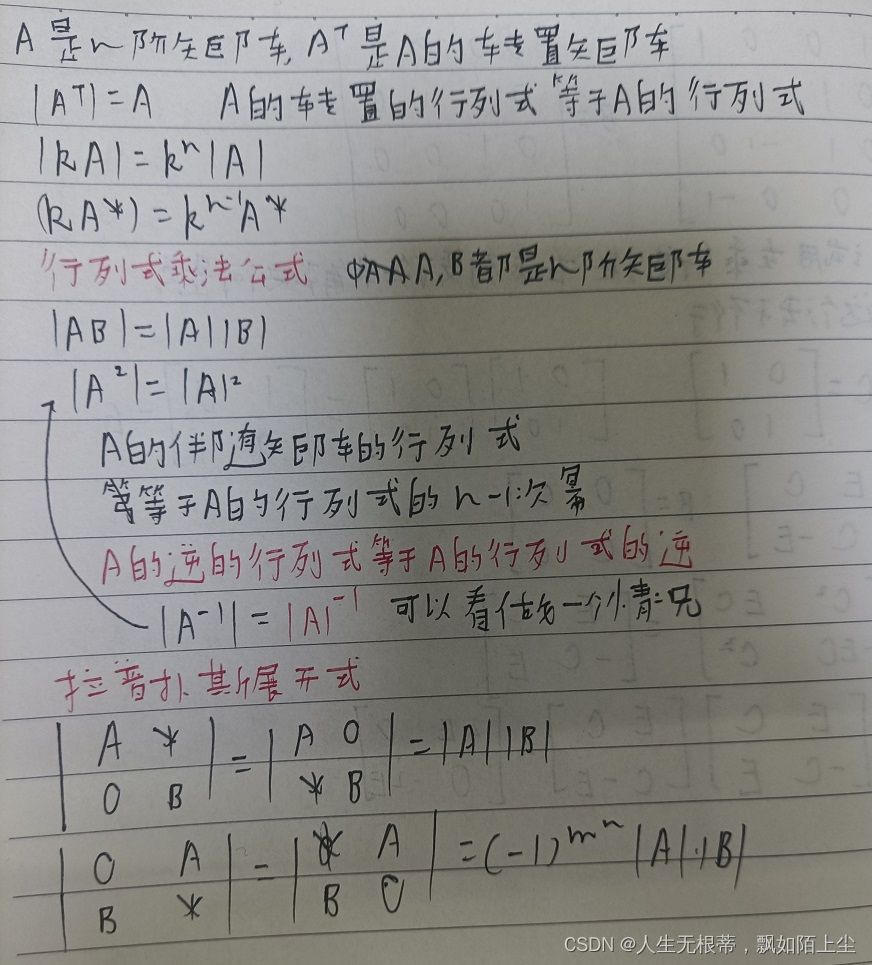 A是n阶矩阵,A^T是A的转置矩阵
|A^T|=A A的转置的行列式等于A的行列式
|kA|=k^n|A|
(kA*)=k^{n-1}A*
行列式乘法公式 A,B都是n阶矩阵
|AB|=|A||B|
|A^2|=|A|^2
A的伴随矩阵的行列式
等于A的行列式的n-1次幂
A的逆的行列式等于A的行列式的逆
|A^{-1}|=|A|^{-1} 可以看作一个小情况
拉普拉斯展开式
|A * ; 0 B|=|A 0 ; * B|=|A||B|
|0 A ; B *|=|* A ; B 0|=(-1)^{mn}|A|·|B|
CSDN @人生无根蒂,飘如陌上尘